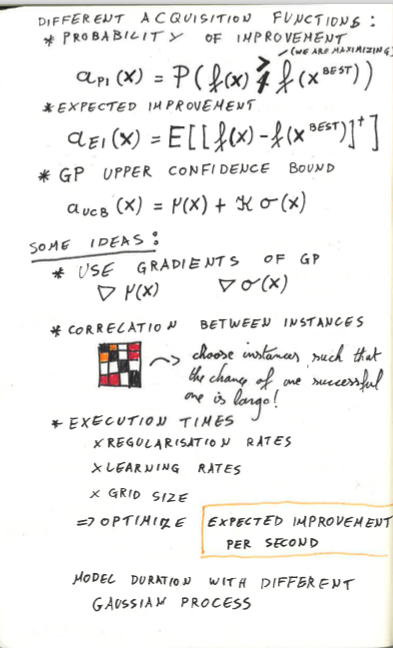 DIFFERENT ACQUISITION FUNCTIONS:
* PROBABILITY OF IMPROVEMENT
(WE ARE MAXIMIZING)
a_PI (x) = P( f(x) > f(x^BEST))
* EXPECTED IMPROVEMENT
a_EI (x) = E[[f(x) - f(x^BEST)]^+]
* GP UPPER CONFIDENCE BOUND
a_UCB (x) = μ(x) + K σ(x)
SOME IDEAS:
* USE GRADIENTS OF GP
∇ μ(x) ∇ σ(x)
* CORRELATION BETWEEN INSTANCES
choose instances such that
the change of one successful
one is large!
* EXECUTION TIMES
x REGULARISATION RATES
x LEARNING RATES
x GRID SIZE
=> OPTIMIZE EXPECTED IMPROVEMENT
PER SECOND
MODEL DURATION WITH DIFFERENT
GAUSSIAN PROCESS